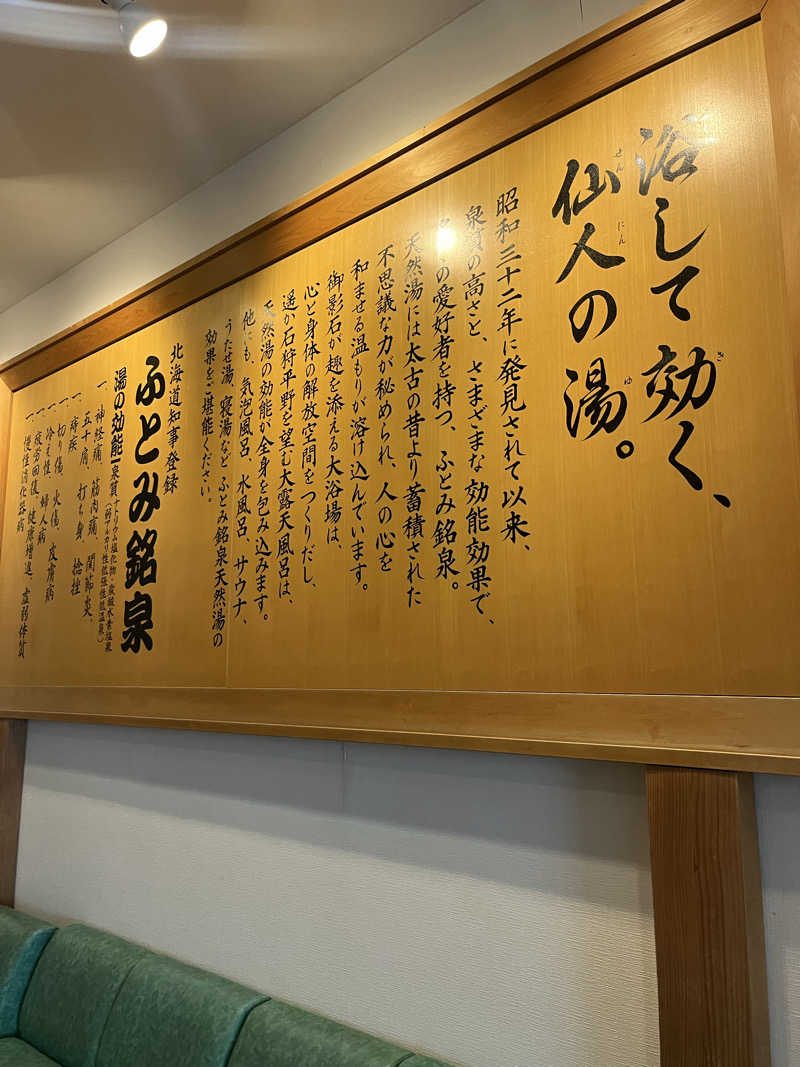 浴して効く、
仙人の湯。
昭和三十二年に発見されて以来、
泉質の高さと、さまざまな効能効果で、
の愛好者を持つ、ふとみ銘泉。
天然湯には太古の昔より蓄積された
不思議な力が秘められ、人の心を
和ませる温もりが溶け込んでいます。
御影石が趣を添える大浴場は、
心と身体の解放空間をつくりだし、
遥か石狩平野を望む大露天風呂は、
天然湯の効能が全身を包み込みます。
他にも、気泡風呂、水風呂、サウナ、
うたせ湯、寝湯など ふとみ銘泉天然湯の
効果をご堪能ください。
北海道知事登録
ふとみ銘泉
湯の効能 泉質 ナトリウム塩化物・炭酸水素塩泉
(弱アルカリ性低張性低温泉)
一、神経痛、筋肉痛、関節炎、
五十肩、打ち身、捻挫
一、痔疾
一、切り傷、火傷、皮膚病
一、冷え性、婦人病
一、疲労回復、健康増進、虚弱体質
一、慢性消化器病